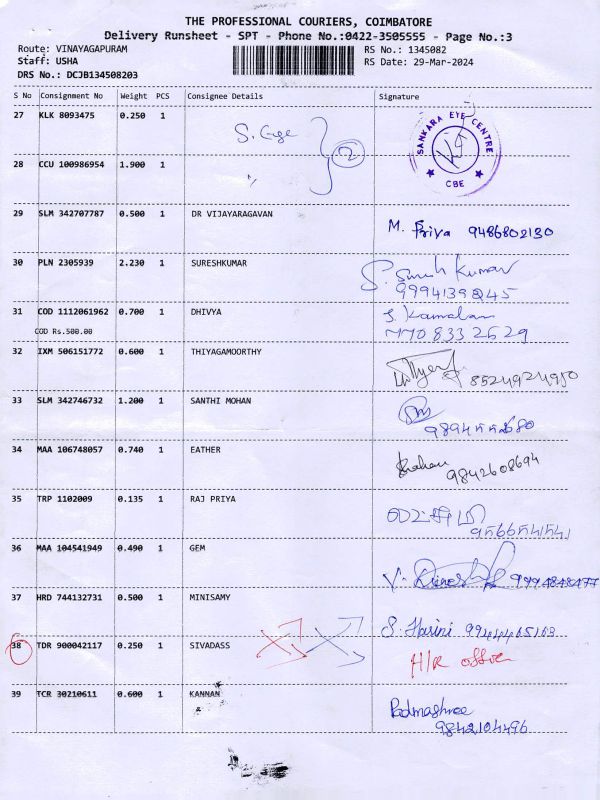 THE PROFESSIONAL COURIERS, COIMBATORE
Delivery Runsheet - SPT - Phone No.:0422-3505555 - Page No.:3
Route: VINAYAGAPURAM RS No.: 1345082
Staff: USHA RS Date: 29-Mar-2024
DRS No.: DCJB134508203
S No Consignment No Weight PCS Consignee Details Signature
27 KLK 8093475 0.250 1 S. Eye SANKARA EYE CENTRE CBE
28 CCU 100986954 1.900 1 " 2
29 SLM 342707787 0.500 1 DR VIJAYARAGAVAN M. Priya 9486802130
30 PLN 2305939 2.230 1 SURESHKUMAR S. Suresh Kumar
9994139845
31 COD 1112061962 0.700 1 DHIVYA S. Kamalan
COD Rs.500.00 7708332629
32 IXM 506151772 0.600 1 THIYAGAMOORTHY 8524924950
33 SLM 342746732 1.200 1 SANTHI MOHAN
34 MAA 106748057 0.740 1 EATHER
9842608694
35 TRP 1102009 0.135 1 RAJ PRIYA
36 MAA 104541949 0.490 1 GEM V. Dinesh 9994848477
37 HRD 744132731 0.500 1 MINISAMY S. Harini 9944465163
38 TDR 900042117 0.250 1 SIVADASS H/R office
39 TCR 30210611 0.600 1 KANNAN Padmashree
9842104496